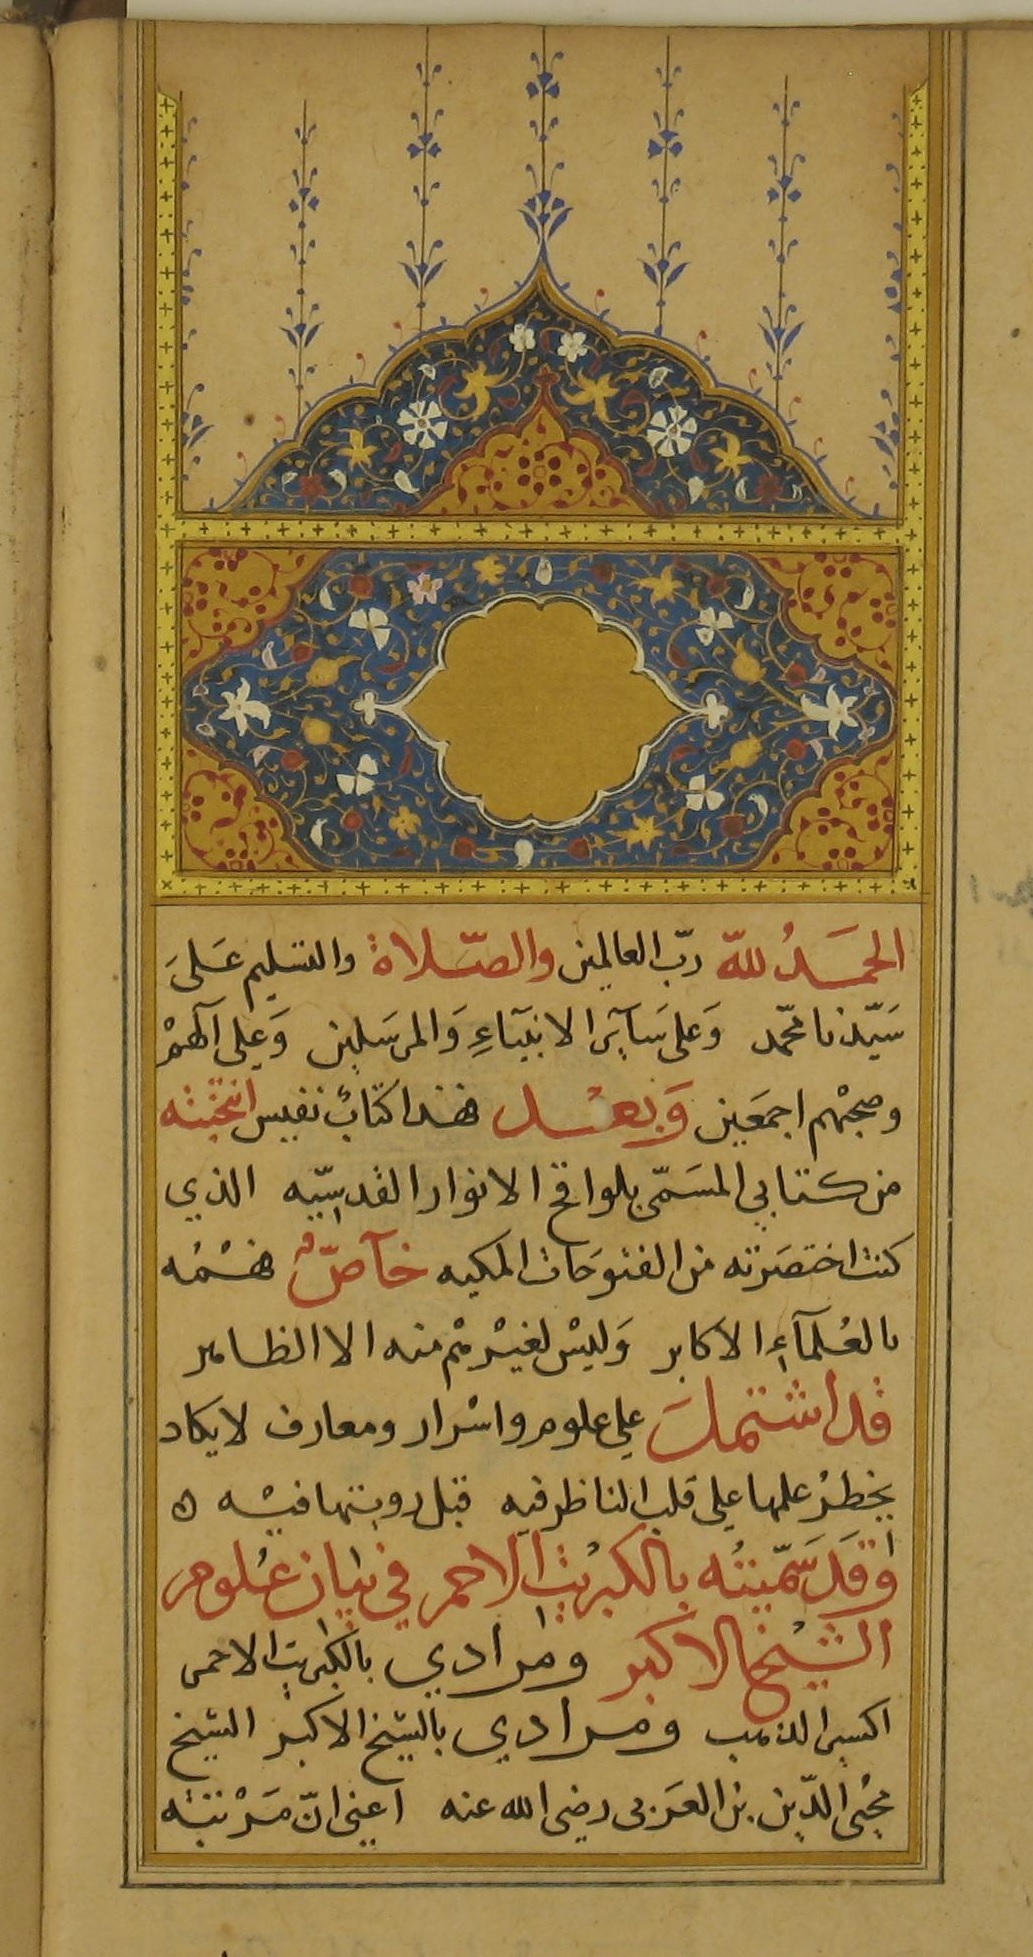 الحَمدُ للّه ربّ العالمين والصّلاة والتسليم عَلىَ
سَيّدنا محّمد وَعلى سَآئرالانبيَآءِ وَالمرسَلين وَعلى آلهمْ
وصحبْهم اجمعَين وَبَعْد فهَذا كتابٌ نفيس انتخبْته
من كتابي المسَمّى بلواقح الانوار القدسيّه الذي
كنت اختصَرته من الفتوحَات المكيه خآصّ فهْمُه
بالعُلمآءِ الاكابر وَليْس لغيْرهمْ منه الا الظاهر
قد اشتملَ على علوم واسْرار ومعارف لايكاد
يخطرُ علمها على قلب الناظر فيه قبل رويتها فيْه ه
وَقَد سَمّيتُه بالكبرْيت الاحمر في بيان عُلوم
الشيْخ الاكبر ومرادي بالكبريت الاحمر
اكسير الذهب ومرادي بالشيخ الاكبر الشيخ
محيْى الدّين بن العرَبى رضى الله عنه اعني انّ مَرْتبته